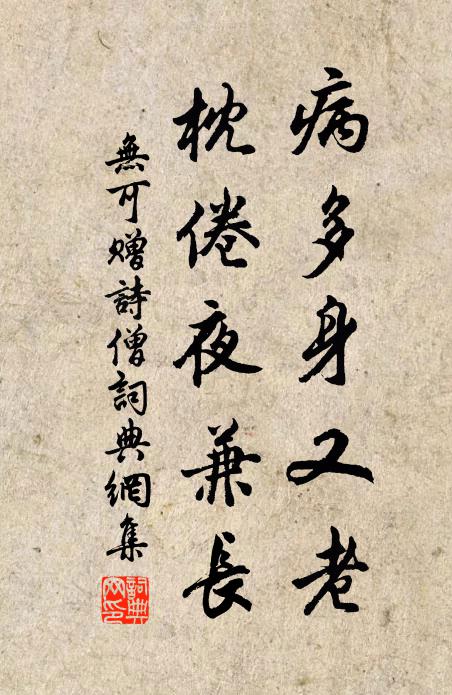 病多身又老
枕倦夜兼長
無可贈詩僧詞典網集
詞典網印